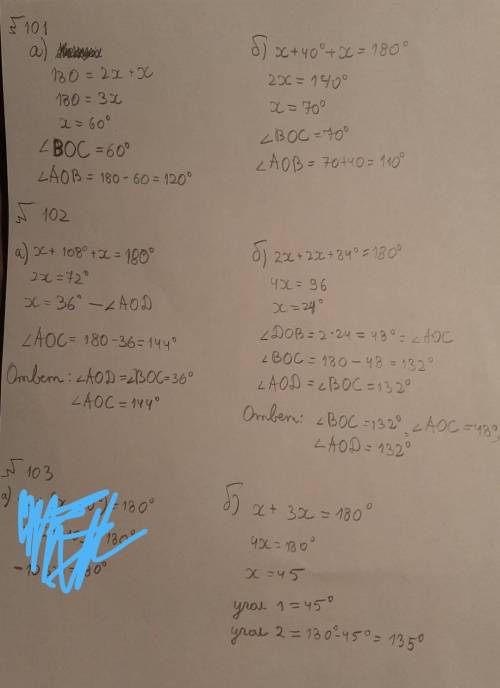 № 101
а)
180 = 2x + x
180 = 3x
x = 60°
∠BOC = 60°
∠AOB = 180 - 60 = 120°
б) x + 40° + x = 180°
2x = 140°
x = 70°
∠BOC = 70°
∠AOB = 70 + 40 = 110°
№ 102
а) x + 108° + x = 180°
2x = 72°
x = 36° — ∠AOD
∠AOC = 180 - 36 = 144°
Ответ: ∠AOD = ∠BOC = 36°
∠AOC = 144°
б) 2x + 2x + 84° = 180°
4x = 96
x = 24°
∠DOB = 2·24 = 48° = ∠AOC
∠BOC = 180 - 48 = 132°
∠AOD = ∠BOC = 132°
Ответ: ∠BOC = 132°, ∠AOC = 48°,
∠AOD = 132°
№ 103
а) = 180°
180°
б) x + 3x = 180°
4x = 180°
x = 45
угол 1 = 45°
угол 2 = 180° - 45° = 135°